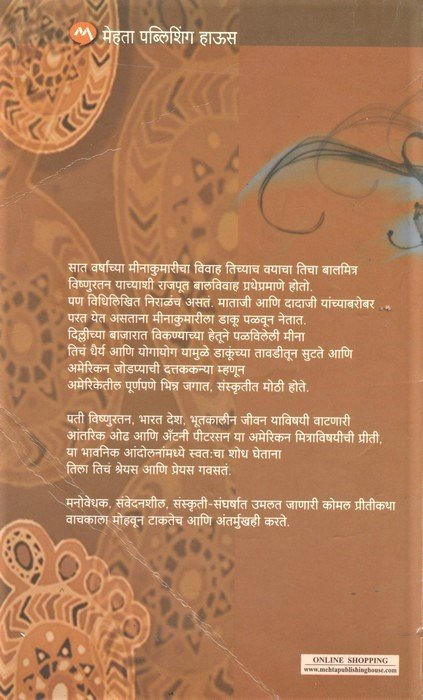 मेहता पब्लिशिंग हाऊस
सात वर्षांच्या मीनाकुमारीचा विवाह तिच्याच वयाचा तिचा बालमित्र
विष्णुरतन याच्याशी राजपूत बालविवाह प्रथेप्रमाणे होतो.
पण विधिलिखित निराळंच असतं. माताजी आणि दादाजी यांच्याबरोबर
परत येत असताना मीनाकुमारीला डाकू पळवून नेतात.
दिल्लीच्या बाजारात विकण्याच्या हेतूने पळविलेली मीना
तिचं धैर्य आणि योगायोग यामुळे डाकूंच्या तावडीतून सुटते आणि
अमेरिकन जोडप्याची दत्तककन्या म्हणून
अमेरिकेतील पूर्णपणे भिन्न जगात, संस्कृतीत मोठी होते.
पती विष्णुरतन, भारत देश, भूतकालीन जीवन याविषयी वाटणारी
आंतरिक ओढ आणि ॲंटनी पीटरसन या अमेरिकन मित्राविषयीची प्रीती,
या भावनिक आंदोलनांमध्ये स्वत:चा शोध घेताना
तिला तिचं श्रेयस आणि प्रेयस गवसतं.
मनोवेधक, संवेदनशील, संस्कृती-संघर्षात उमलत जाणारी कोमल प्रीतीकथा
वाचकाला मोहवून टाकतेच आणि अंतर्मुखही करते.
ONLINE SHOPPING
www.mehtapublishinghouse.com